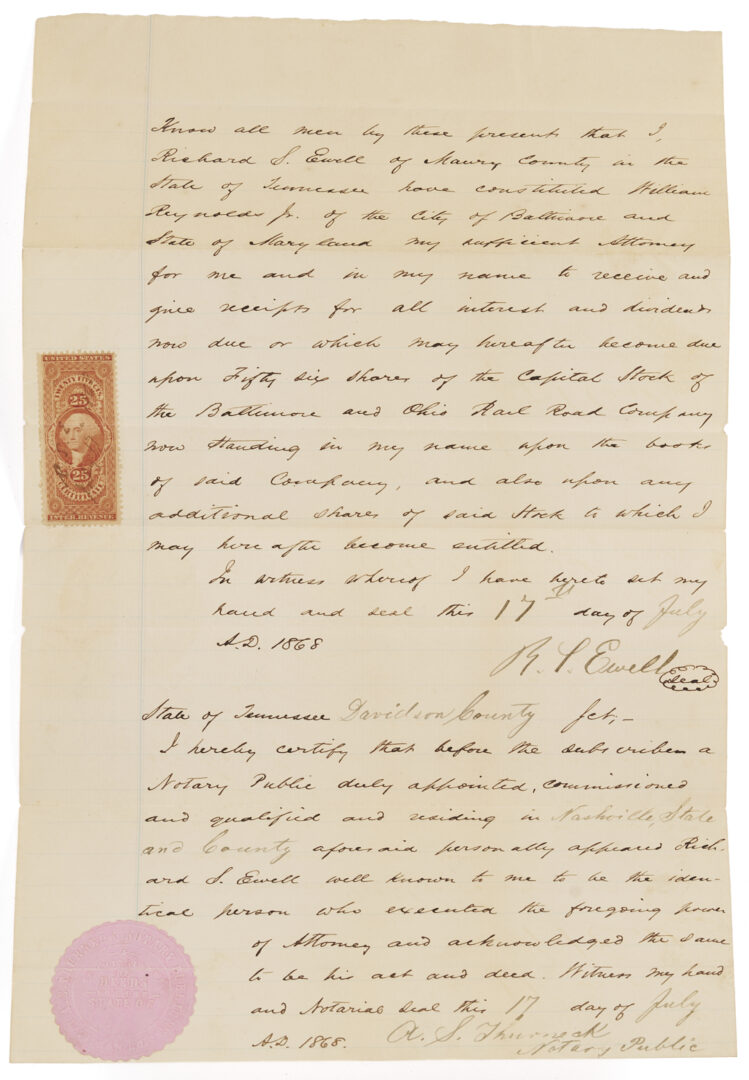 Know all men by these presents that I,
Richard S. Ewell of Maury County in the
State of Tennessee have constituted William
Reynolds Jr. of the City of Baltimore and
State of Maryland my sufficient Attorney
for me and in my name to receive and
give receipts for all interest and dividends
now due or which may hereafter become due
upon Fifty six shares of the Capital Stock of
the Baltimore and Ohio Rail Road Company
now standing in my name upon the books
of said Company, and also upon any
additional shares of said Stock to which I
may here after become entitled.
In witness whereof I have hereto set my
hand and seal this 17th day of July
A.D. 1868
R. S. Ewell
Seal
UNITED STATES
25
25
CERTIFICATE
INTER. REVENUE
State of Tennessee Davidson County Sct,-
I hereby certify that before the subscriber a
Notary Public duly appointed, commissioned
and qualified and residing in Nashville, State
and County aforesaid personally appeared Rich-
ard S. Ewell well known to me to be the iden-
tical person who executed the foregoing power
of Attorney and acknowledged the same
to be his act and deed. Witness my hand
and Notarial seal this 17 day of July
A.D. 1868.
Notary Public